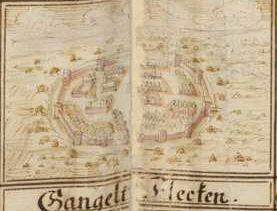 Gangelt Flecken.